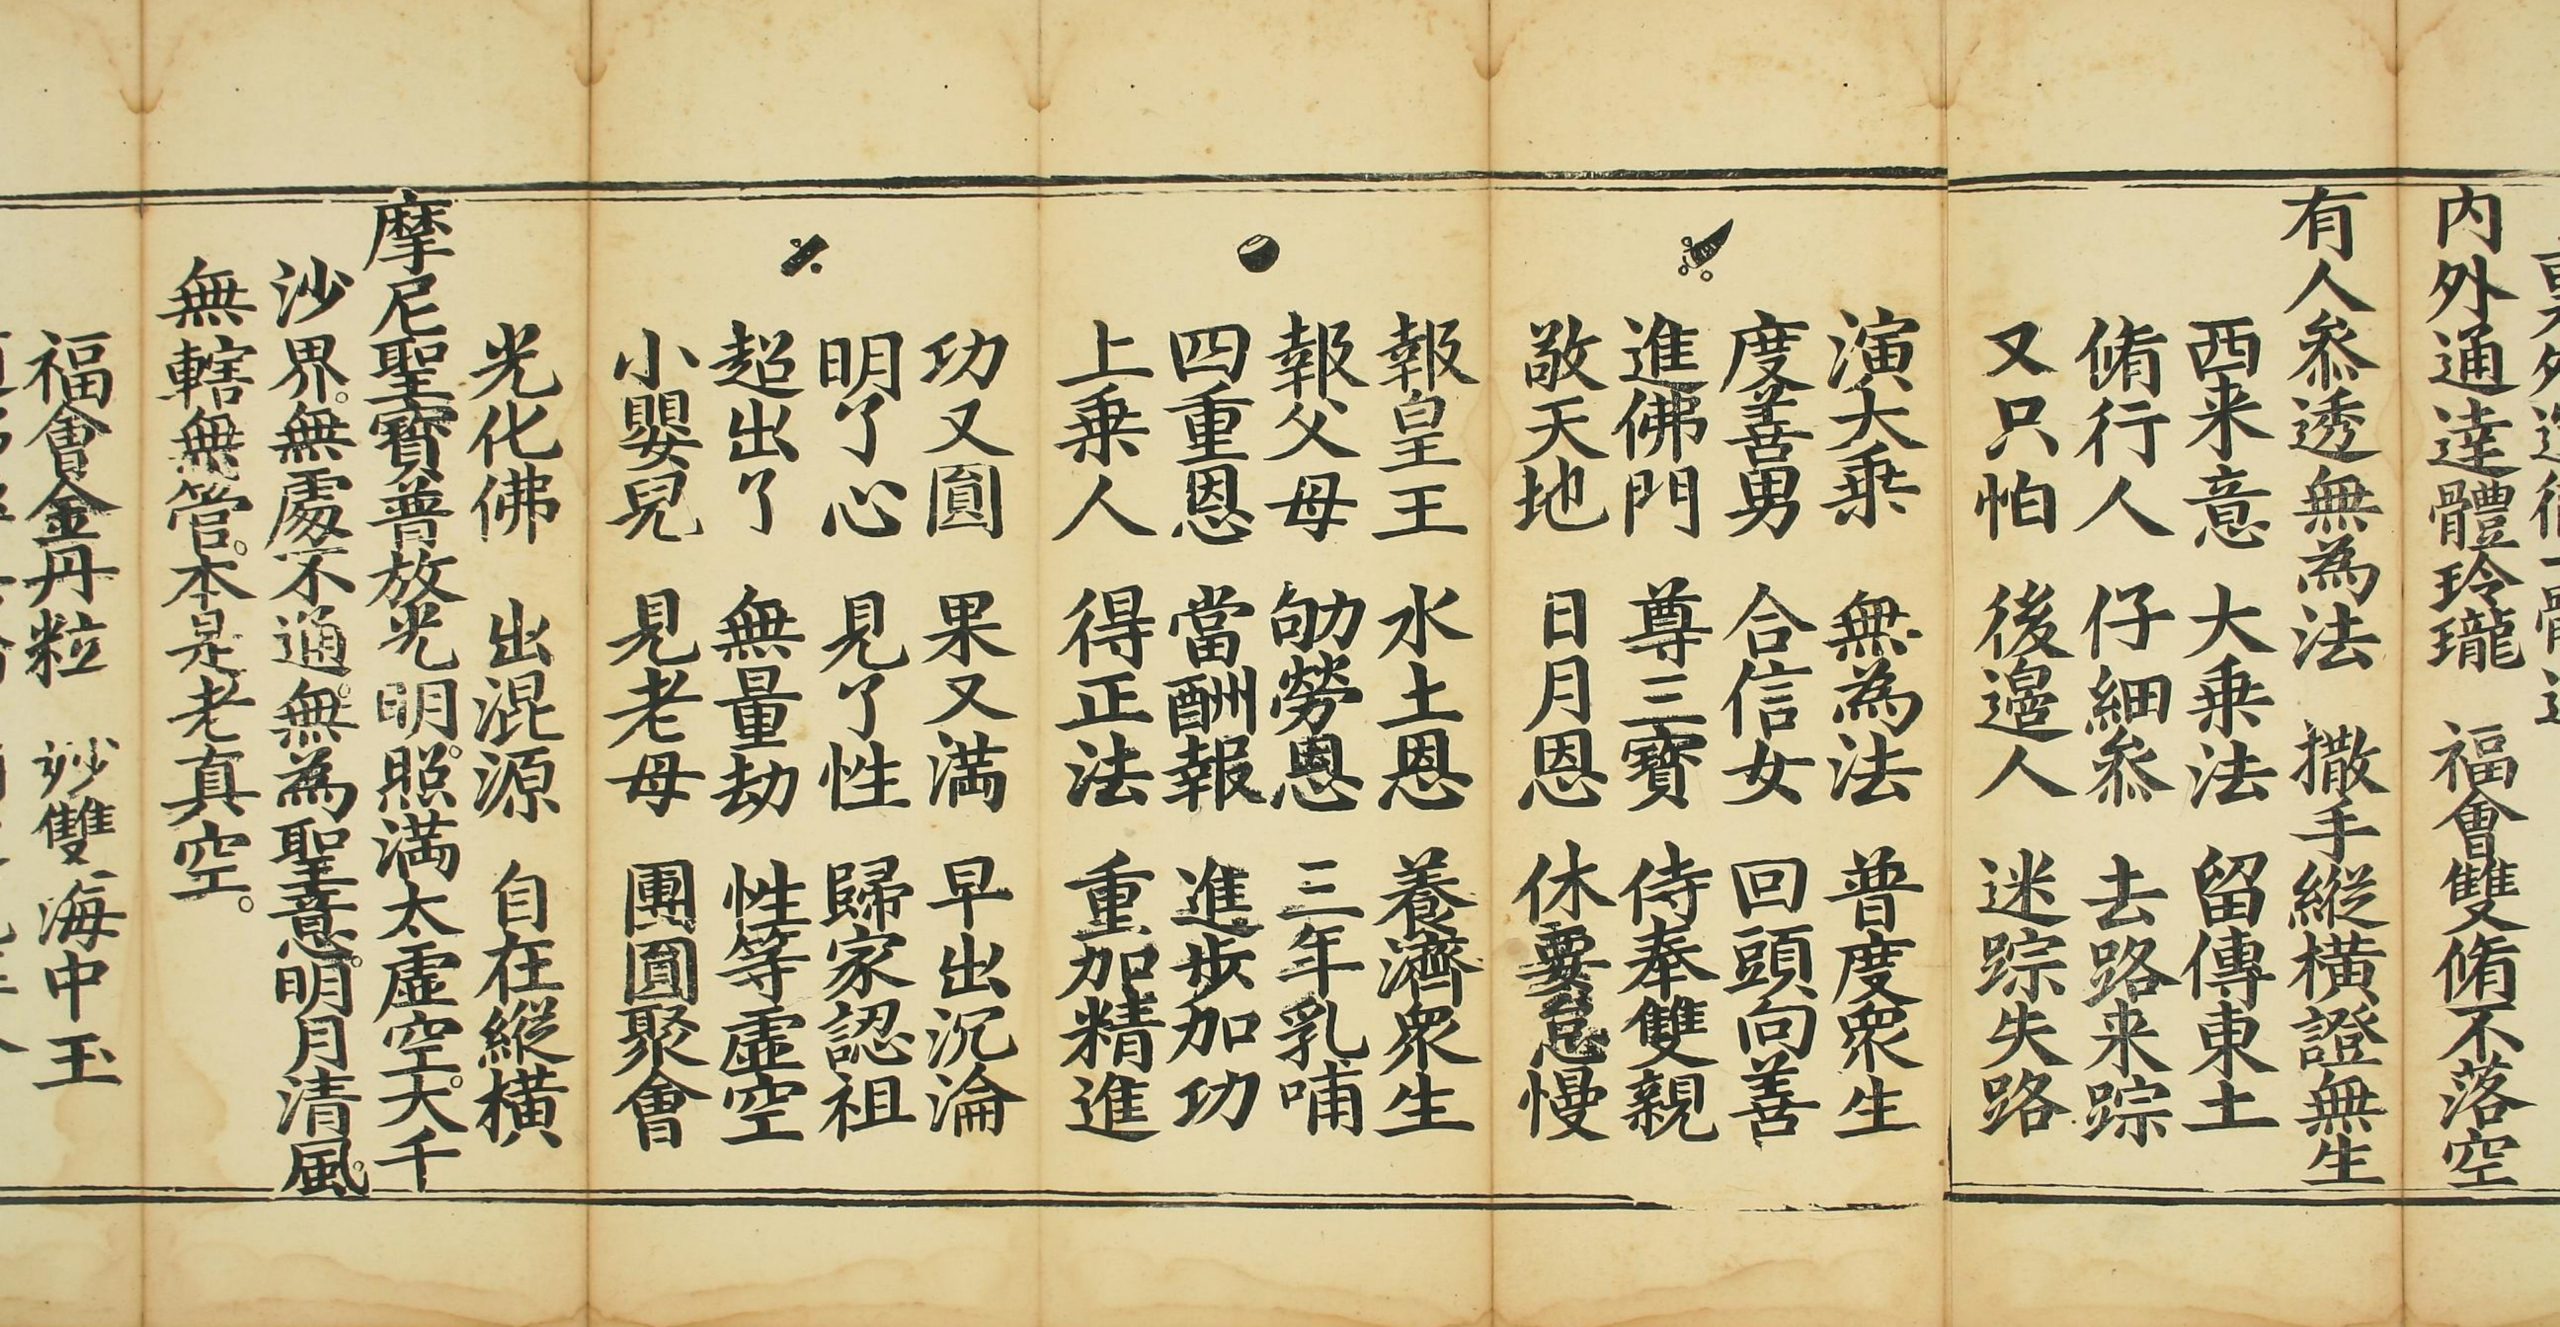 内外通達體玲瓏 福會雙脩不落空
有人叅透無為法 撒手縱橫證無生
西来意 大乗法 留傳東土
脩行人 仔細叅 去路来踪
又只怕 後邊人 迷踪失路
演大乗 無為法 普度衆生
度善男 合信女 回頭向善
進佛門 尊三寶 侍奉雙親
敬天地 日月恩 休要怠慢
報皇王 水土恩 養濟衆生
報父母 劬勞恩 三年乳哺
四重恩 當酬報 進步加功
上乗人 得正法 重加精進
功又圓 果又満 早出沉淪
明了心 見了性 歸家認祖
超出了 無量劫 性等虛空
小嬰兒 見老母 團圓聚會
光化佛 出混源 自在縱横
摩尼聖寳普放光明。照満太虛空。大千
沙界。無處不通。無為聖意。明月清風。
無轄無管。本是老真空。
福會金丹粒 妙雙海中玉